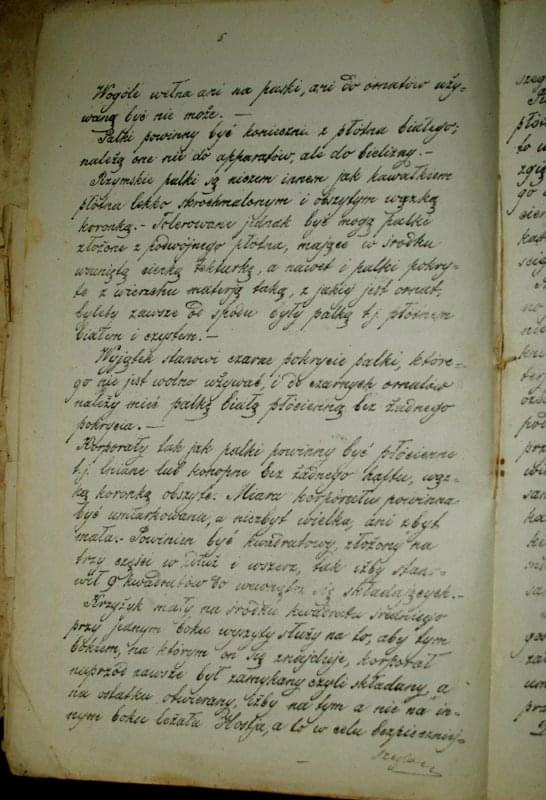 5
Wogóle wełna ani na paski, ani do ornatów uży-
waną być nie może. —
Palki powinny być koniecznie z płótna białego;
należą one nie do apparatów, ale do bielizny. —
Rzymskie palki są niczem innem jak kawałkiem
płótna lekko skrochmalonym i obszytym wązką
koronką. - Tolerowane jednak być mogą palki
złożone z podwójnego płótna, mające w środku
wsuniętą cienką tekturkę, a nawet i palki pokry-
te z wierzchu materją taką, z jakiej jest ornat,
byleby zawsze od spodu były palką t.j. płótnem
białem i czystem. —
Wyjątek stanowi czarne pokrycie palki, które-
go nie jest wolno używać, i do czarnych ornatów
należy mieć palkę białą płócienną bez żadnego
pokrycia. —
Korporały tak jak palki powinny być płócienne
t.j. lniane lub konopne bez żadnego haftu, wąz-
ką koronką obszyte. Miara korporału powinna
być umiarkowana, a niezbyt wielka, ani zbyt
mała. - Powinien być kwadratowy, złożony na
trzy części w dłuż i wszerz, tak iżby stano-
wił 9 kwadratów do wewnątrz się składających. -
Krzyżyk mały na środku kwadratu średniego
przy jednym boku wyszyty służy na to, aby tym
bokiem, na którym on się znajduje, korporał
naprzód zawsze był zamykany czyli składany, a
na ostatku otwierany, iżby na tym a nie na in-
nym boku leżała Hostja, a to w celu bezpieczniej-
szego